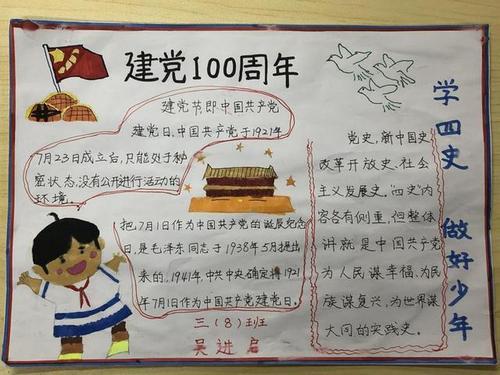 建党100周年
建党节即中国共产党
建党日,中国共产党于1921年
7月23日成立台,只能处于秘
密状态,没有公开进行活动的
环境。
把7月1日作为中国共产党的诞辰纪念
日,是毛泽东同志于1938年5月提出
来的。1941年,中共中央确定将1921
年7月1日作为中国共产党建党日。
三(8)班
吴进启
党史、新中国史、
改革开放史、社会
主义发展史,"四史"内
容各有侧重,但整体
讲就是中国共产党
为人民谋幸福、为民
族谋复兴,为世界谋
大同的实践史。
学四史 做好少年